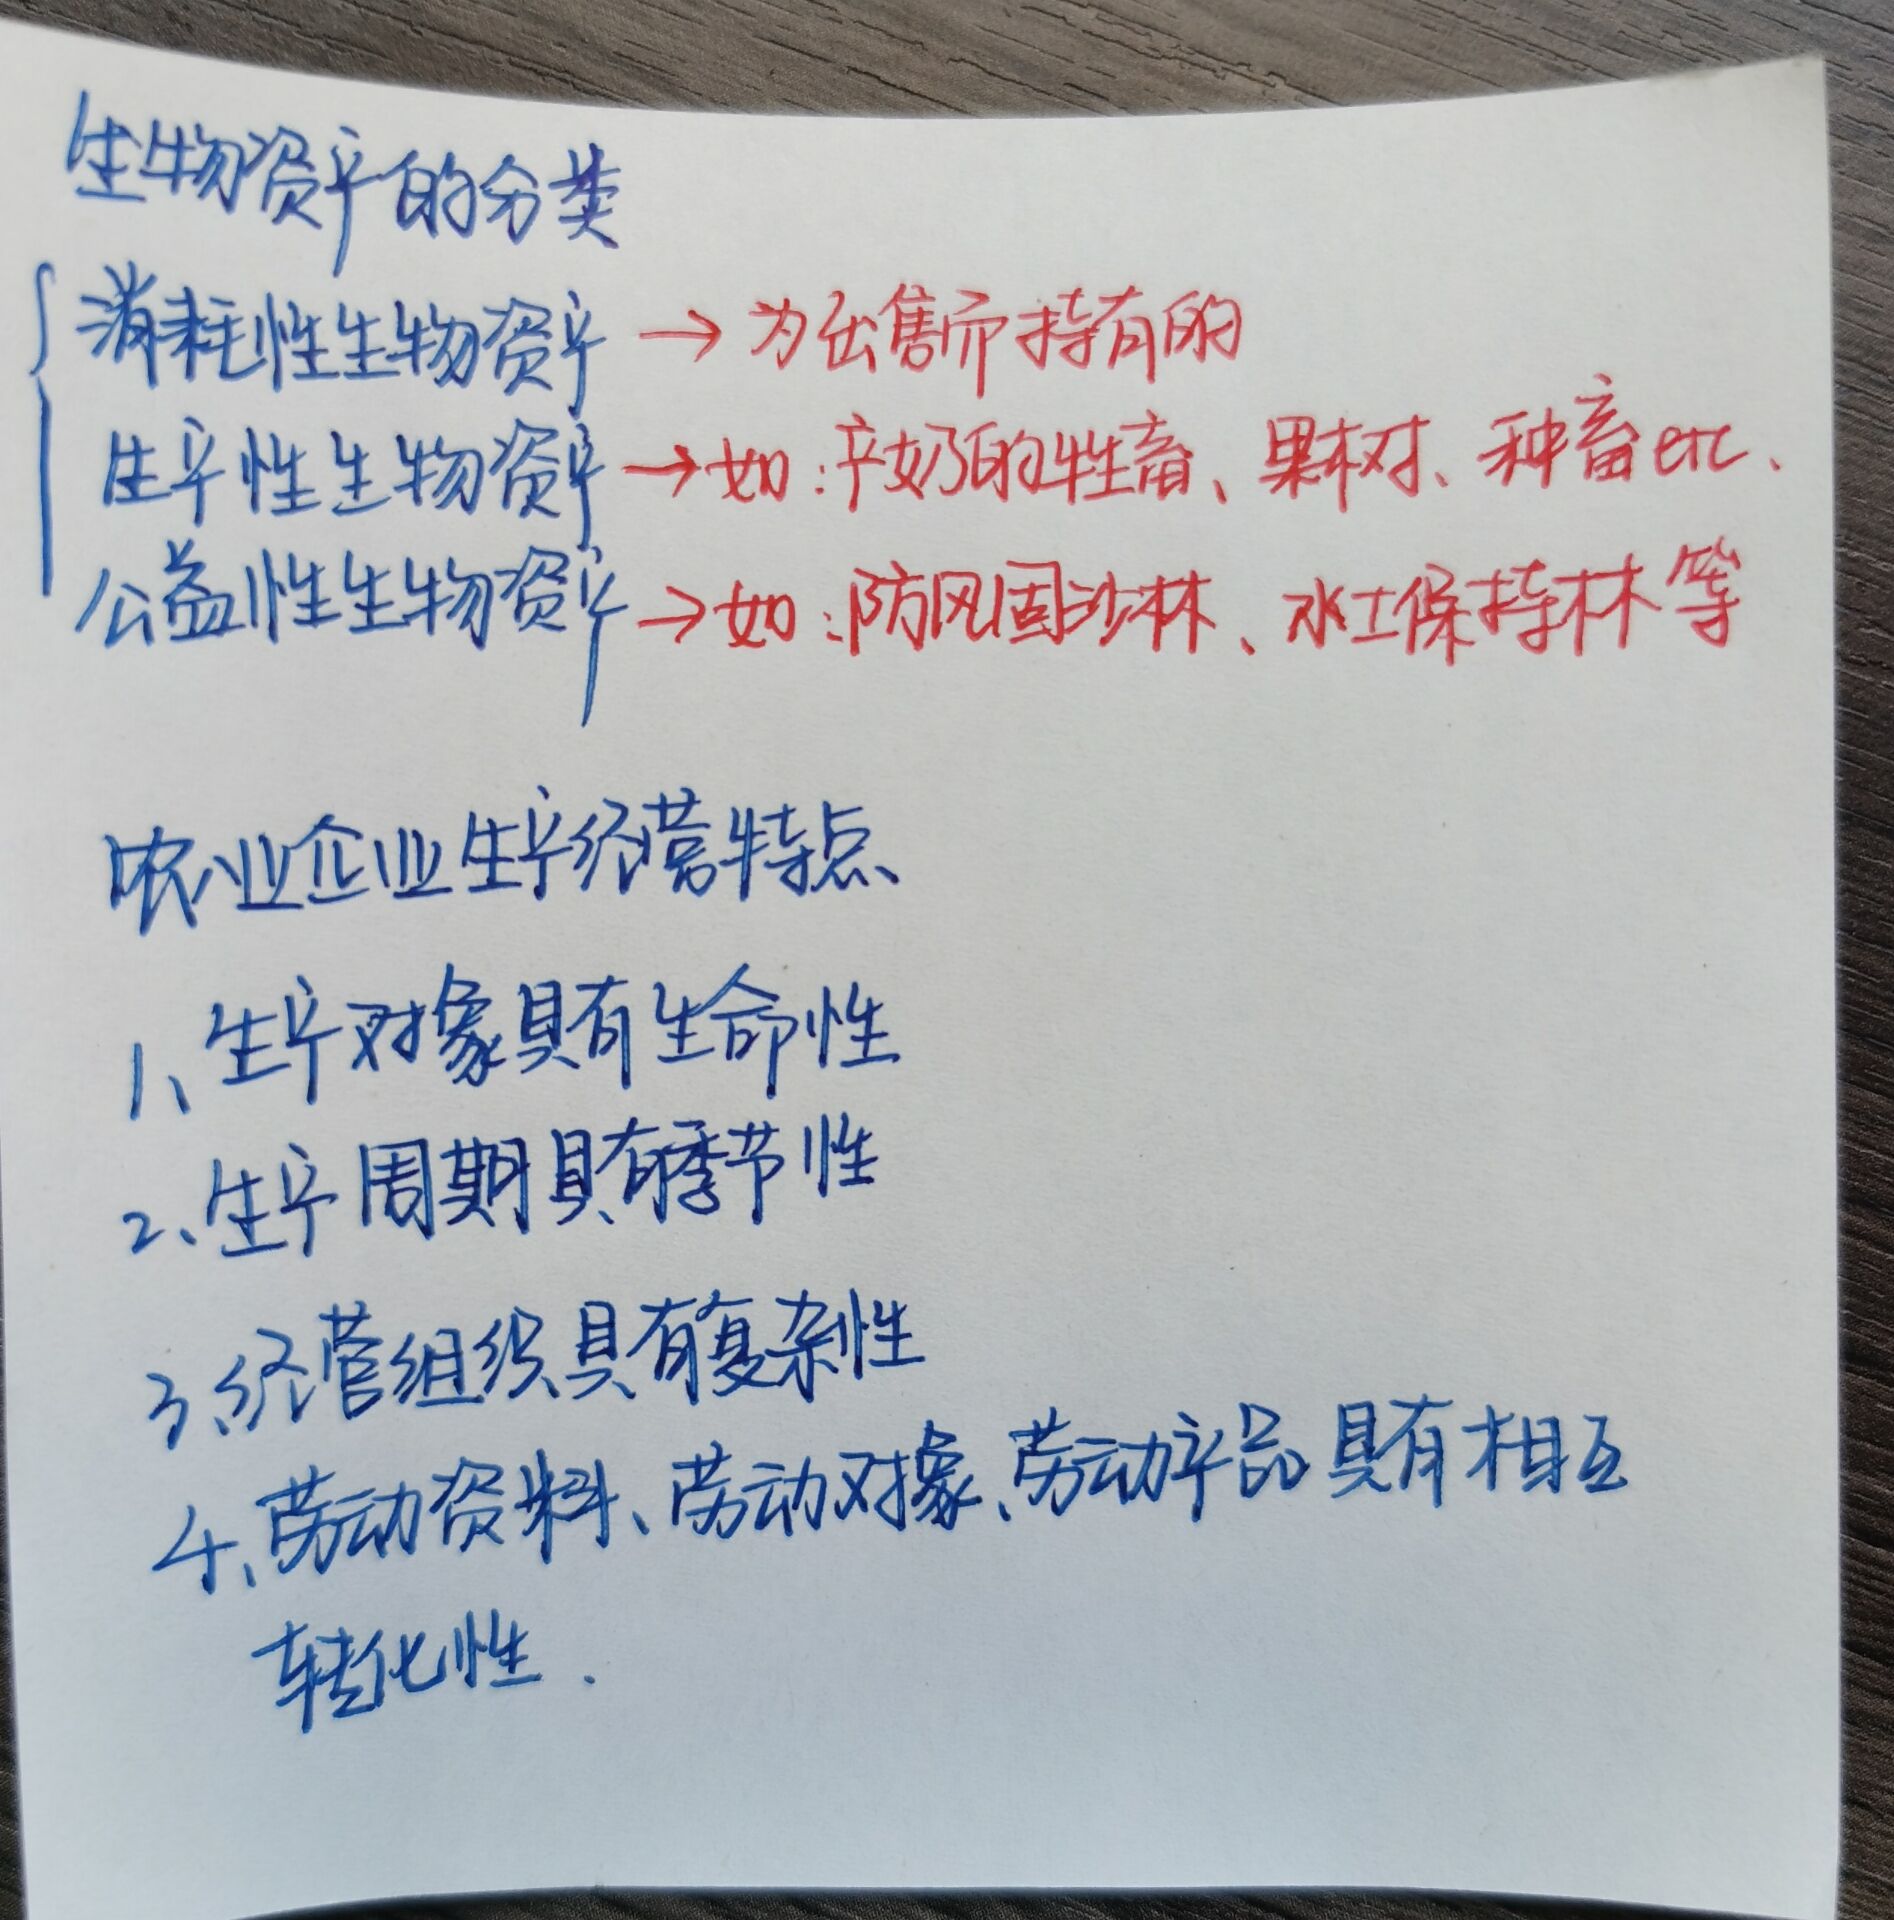 生物资产的分类
消耗性生物资产→为出售而持有的
生产性生物资产→如:产奶的牲畜、果树、种畜etc.
公益性生物资产→如:防风固沙林、水土保持林等
农业企业生产经营特点
1、生产对象具有生命性
2、生产周期具有季节性
3、经营组织具有复杂性
4、劳动资料、劳动对象、劳动产品具有相互
转化性.